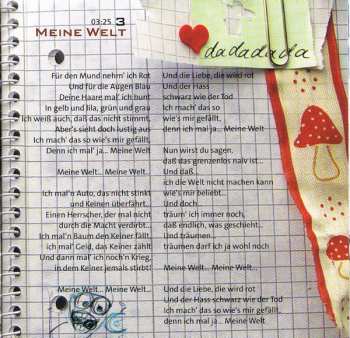 03:25 3
MEINE WELT
dadadada
Für den Mund nehm' ich Rot
Und für die Augen Blau
Deine Haare mal' ich bunt
In gelb und lila, grün und grau
Ich weiß auch, daß das nicht stimmt,
Aber's sieht doch lustig aus
Ich mach' das so wie's mir gefällt,
Denn ich mal' ja... Meine Welt
Meine Welt... Meine Welt...
Ich mal'n Auto, das nicht stinkt
und Keinen überfährt
Einen Herrscher, der mal nicht
durch die Macht verdirbt...
Ich mal'n Baum den Keiner fällt,
ich mal' Geld, das Keiner zählt
Und dann mal' ich noch'n Krieg,
in dem Keiner jemals stirbt!
Meine Welt... Meine Welt...
Und die Liebe, die wird rot
Und der Hass
schwarz wie der Tod
Ich mach' das so
wie's mir gefällt,
denn ich mal ja... Meine Welt
Nun wirst du sagen,
daß das grenzenlos naiv ist...
Und daß
ich die Welt nicht machen kann
wie's mir beliebt...
Und doch
träum' ich immer noch,
daß endlich, was geschieht...
Und träumen...
träumen darf ich ja wohl noch
Meine Welt... Meine Welt...
Und die Liebe, die wird rot
Und der Hass schwarz wie der Tod
Ich mach' das so wie's mir gefällt,
denn ich mal ja... Meine Welt